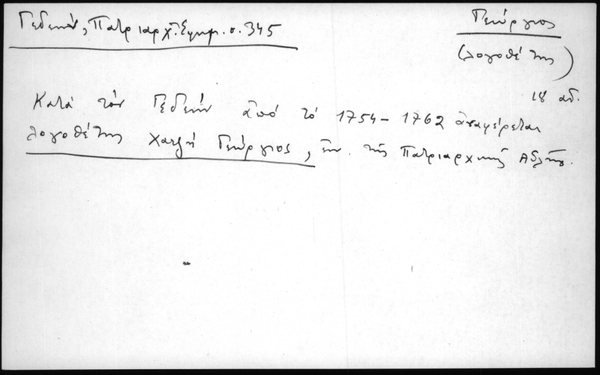 Γεδεών, Πατριαρχ. Εφημ. σ. 345
Γεώργιος
(λογοθέτης)
18 αι.
Κατά τόν Γεδεών ἀπό τό 1754-1762 ἀναφέρεται
λογοθέτης Χατζῆ Γεώργιος, ἐν. τῆς Πατριαρχικῆς Αὐλῆς.